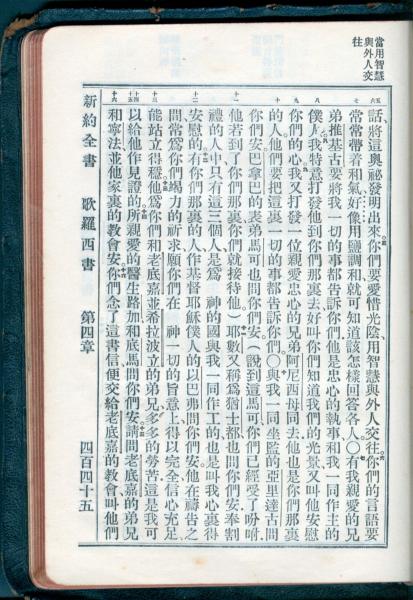 當用智慧
與外人交
往
五六
七
八
九
十
十一
十二
十三
十四
十五
十六
話將這奧祕發明出來你們要愛惜光陰用智慧與外人交往你們的言語要
常常帶着和氣好像用鹽調和就可知道該怎樣回答各人〇有我親愛的兄
弟推基古要將我一切的事都告訴你們他是忠心的執事和我一同作主的
僕人我特意打發他到你們那裏去好叫你們知道我們的光景又叫他安慰
你們的心我又打發一位親愛忠心的兄弟阿尼西母同去他也是你們那裏
的人他們要把這裏一切的事都告訴你們〇與我一同坐監的亞里達古問
你們安巴拿巴的表弟馬可也問你們安(說到這馬可你們已經受了吩咐
他若到了你們那裏你們就接待他)耶數又稱爲猶士都也問你們安奉割
禮的人中只有這三個人是爲 神的國與我一同作工的也是叫我心裏得
安慰的有你們那裏的人作基督耶穌僕人的以巴弗問你們安他在禱告之
間常爲你們竭力的祈求願你們在 神一切的旨意上得以完全信心充足
能站立得穩他爲你們和老底嘉並希拉波立的弟兄多多的勞苦這是我可
以給他作見證的所親愛的醫生路加和底馬問你們安請問老底嘉的弟兄
和寧法並他家裏的教會安你們念了這書信便交給老底嘉的教會叫他們
新約全書 歌羅西書 第四章 四百四十五